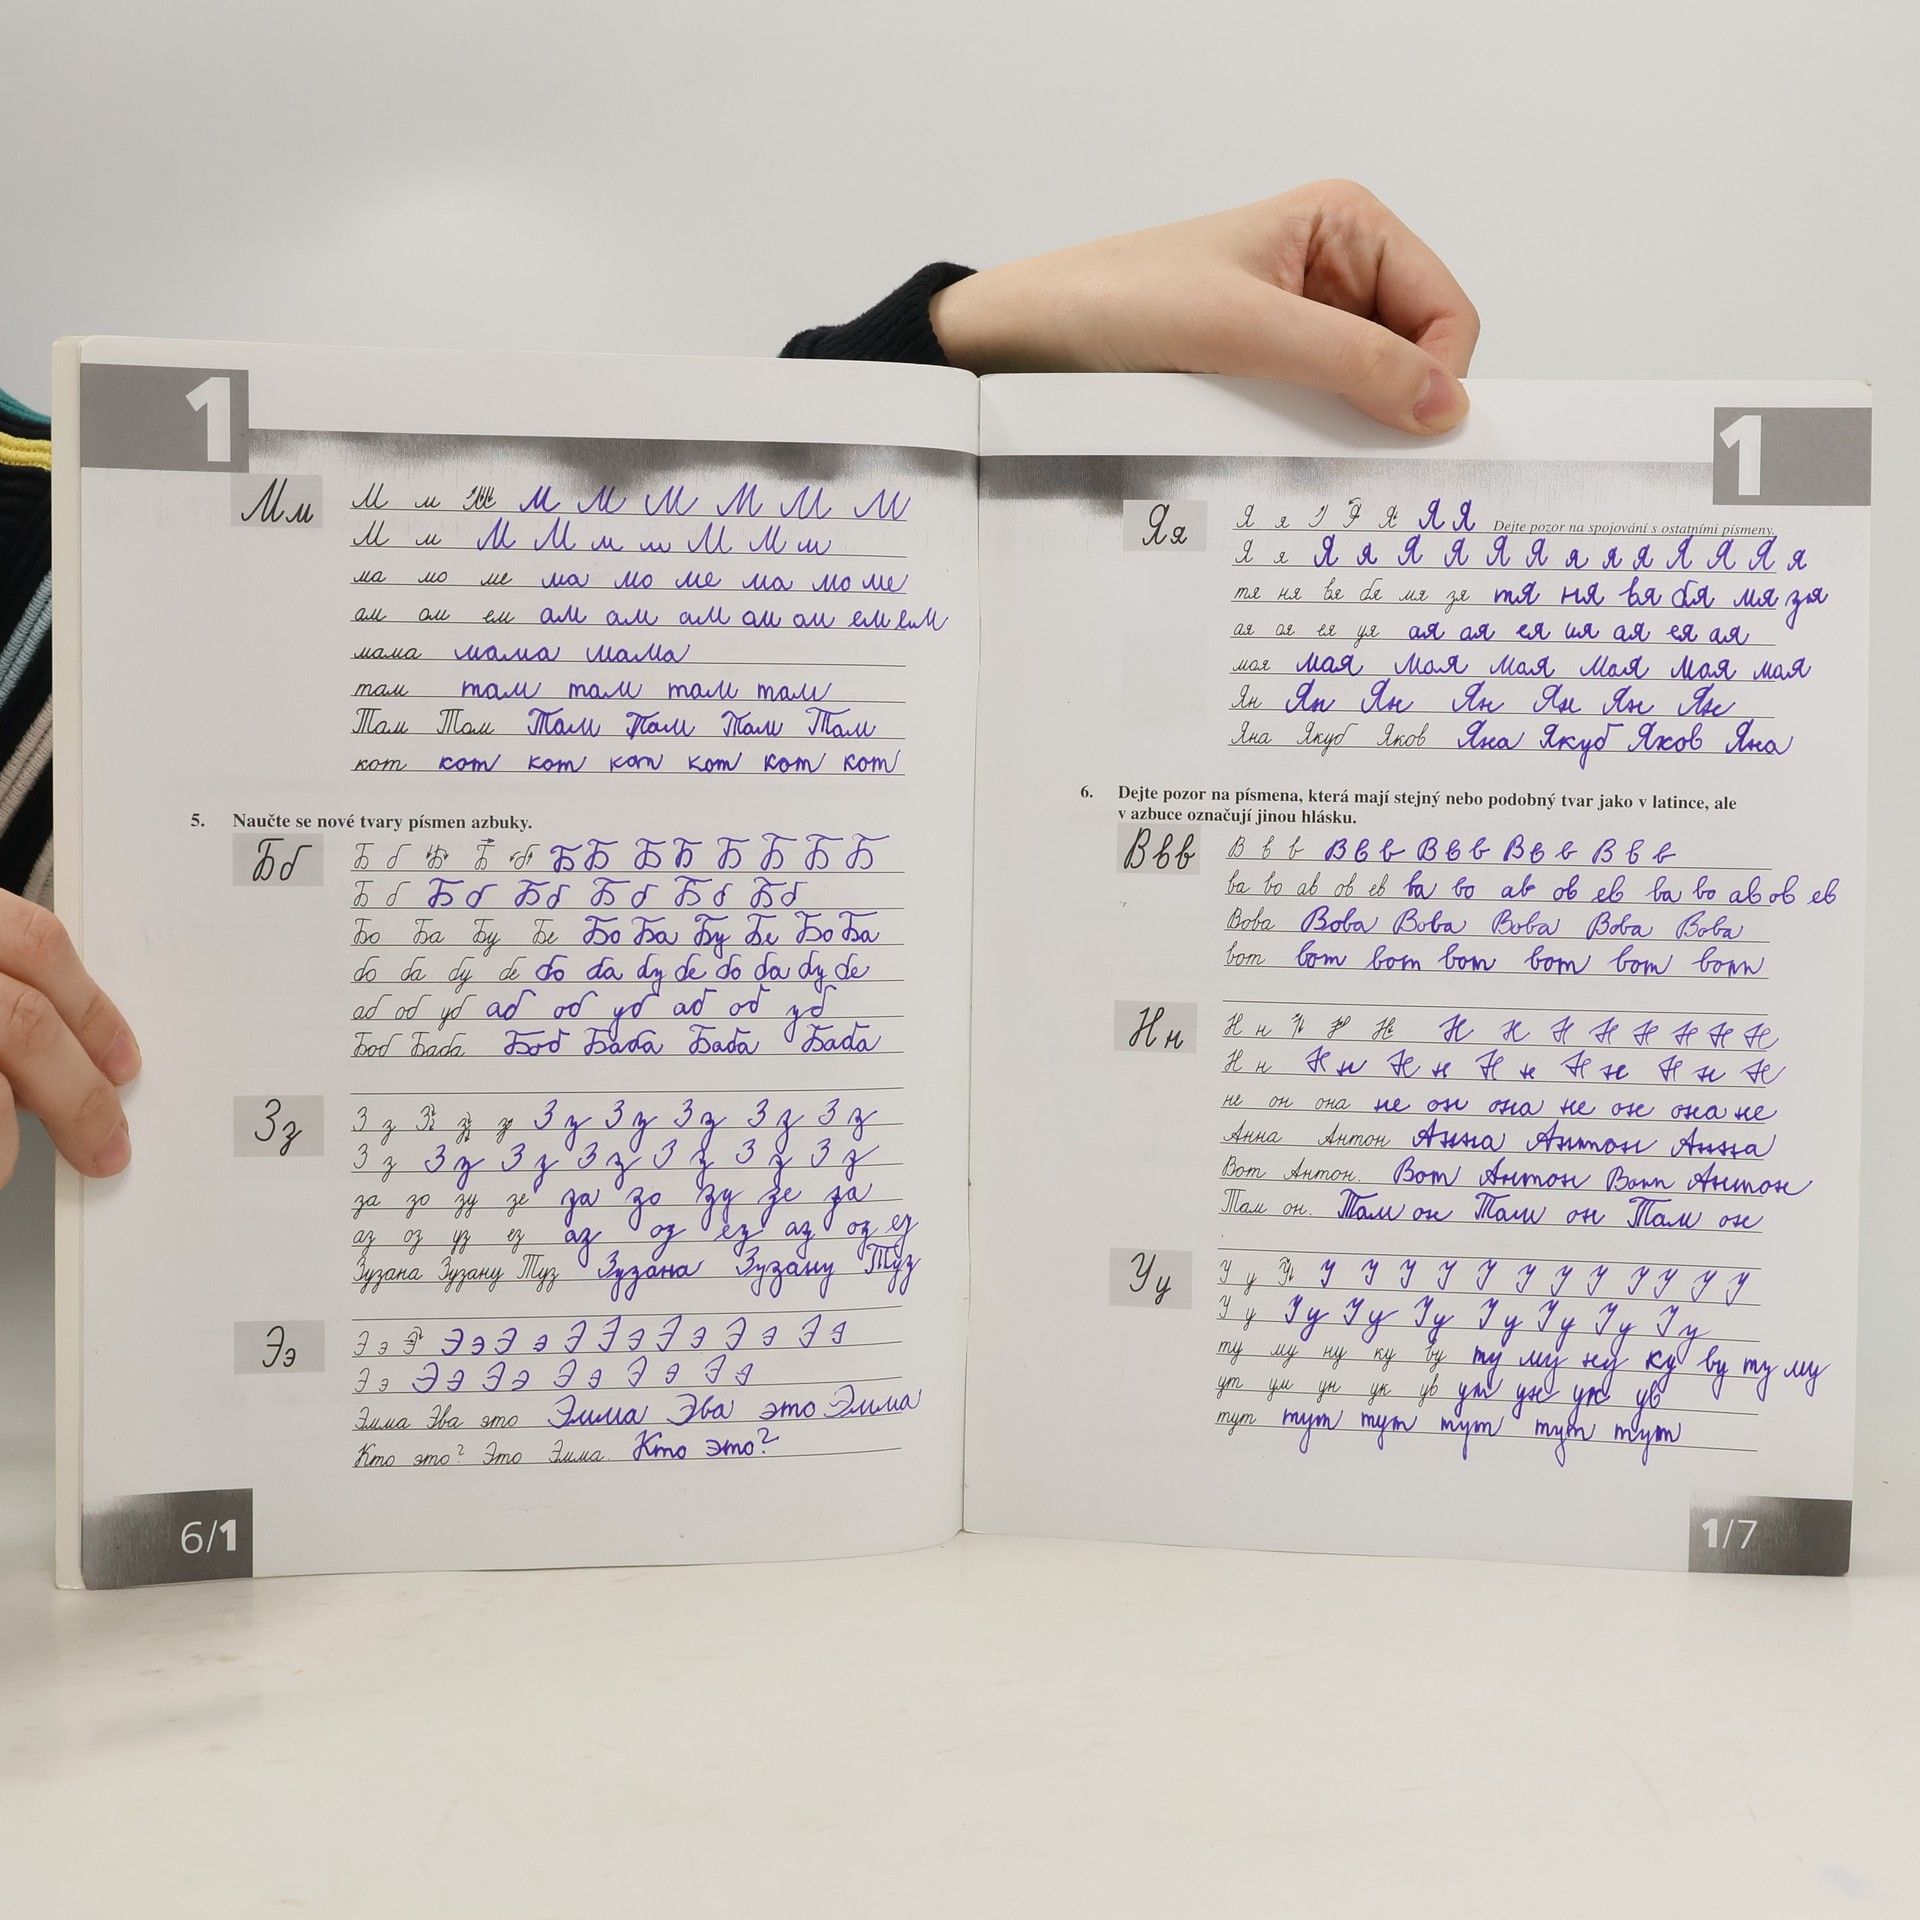 1
Мм М м М М М М М М
М м М М м м М М м
ма мо ме ма мо ме ма мо ме
ам ом ем ам ам ам ом ом ем ем
мама мама мама
там там там там там
Там Том Там Там Там Там
кот кот кот кот кот кот кот
5. Naučte se nové tvary písmen azbuky.
Бб Б б Б Б б Б Б Б Б Б Б Б Б
Б б Б б Б б Б б Б б Б б
Бо Ба Бу Бе Бо Ба Бу Бе Бо Ба
бо ба бу бе бо ба бу бе бо ба бу бе
аб об уб аб об уб аб об уб
Боб Баба Боб Баба Баба Баба
Зз З з З з з З з З з З з З з З з
З з З з З з З з З з З з З з
за зо зу зе за зо зу зе за
аз оз уз ез аз оз ез аз оз ез
Зузана Зузану Туз Зузана Зузану Туз
Ээ Э э Э Э э Э э Э Э э Э э Э э Э э
Э э Э э Э э Э э Э э Э э
Эмма Эва это Эмма Эва это Эмма
Кто это? Это Эмма. Кто это?
6/1
1
Яя Я я Я Я Я Я Dejte pozor na spojování s ostatními písmeny.
Я я Я я Я Я Я Я я я Я Я Я Я я
тя ня вя бя мя зя тя ня вя бя мя зя
ая оя ея уя ая оя ея ия ая ея ая
моя мая моя моя моя моя моя
Ян Ян Ян Ян Ян Ян Ян
Яна Якуб Яков Яна Якуб Яков Яна
6. Dejte pozor na písmena, která mají stejný nebo podobný tvar jako v latince, ale
v azbuce označují jinou hlásku.
Ввв В в в В в в В в в В в в В в в
ва во ав ов ев ва во ав ов ев ва во ав ов ев
Вова Вова Вова Вова Вова Вова
вот вот вот вот вот вот вот
Нн Н н Н Н Н Н Н Н Н Н Н Н
Н н Н н Н н Н н Н н Н н Н
не он она не он она не он она не
Анна Антон Анна Антон Анна
Вот Антон. Вот Антон Вот Антон
Там он. Там он Там он Там он
Уу У у У У У У У У У У У У У У У
У у У у У у У у У у У у У у У у
ту му ну ку ву ту му ну ку ву ту му
ут ум ун ук ув ут ун ук ув
тут тут тут тут тут тут
1/7